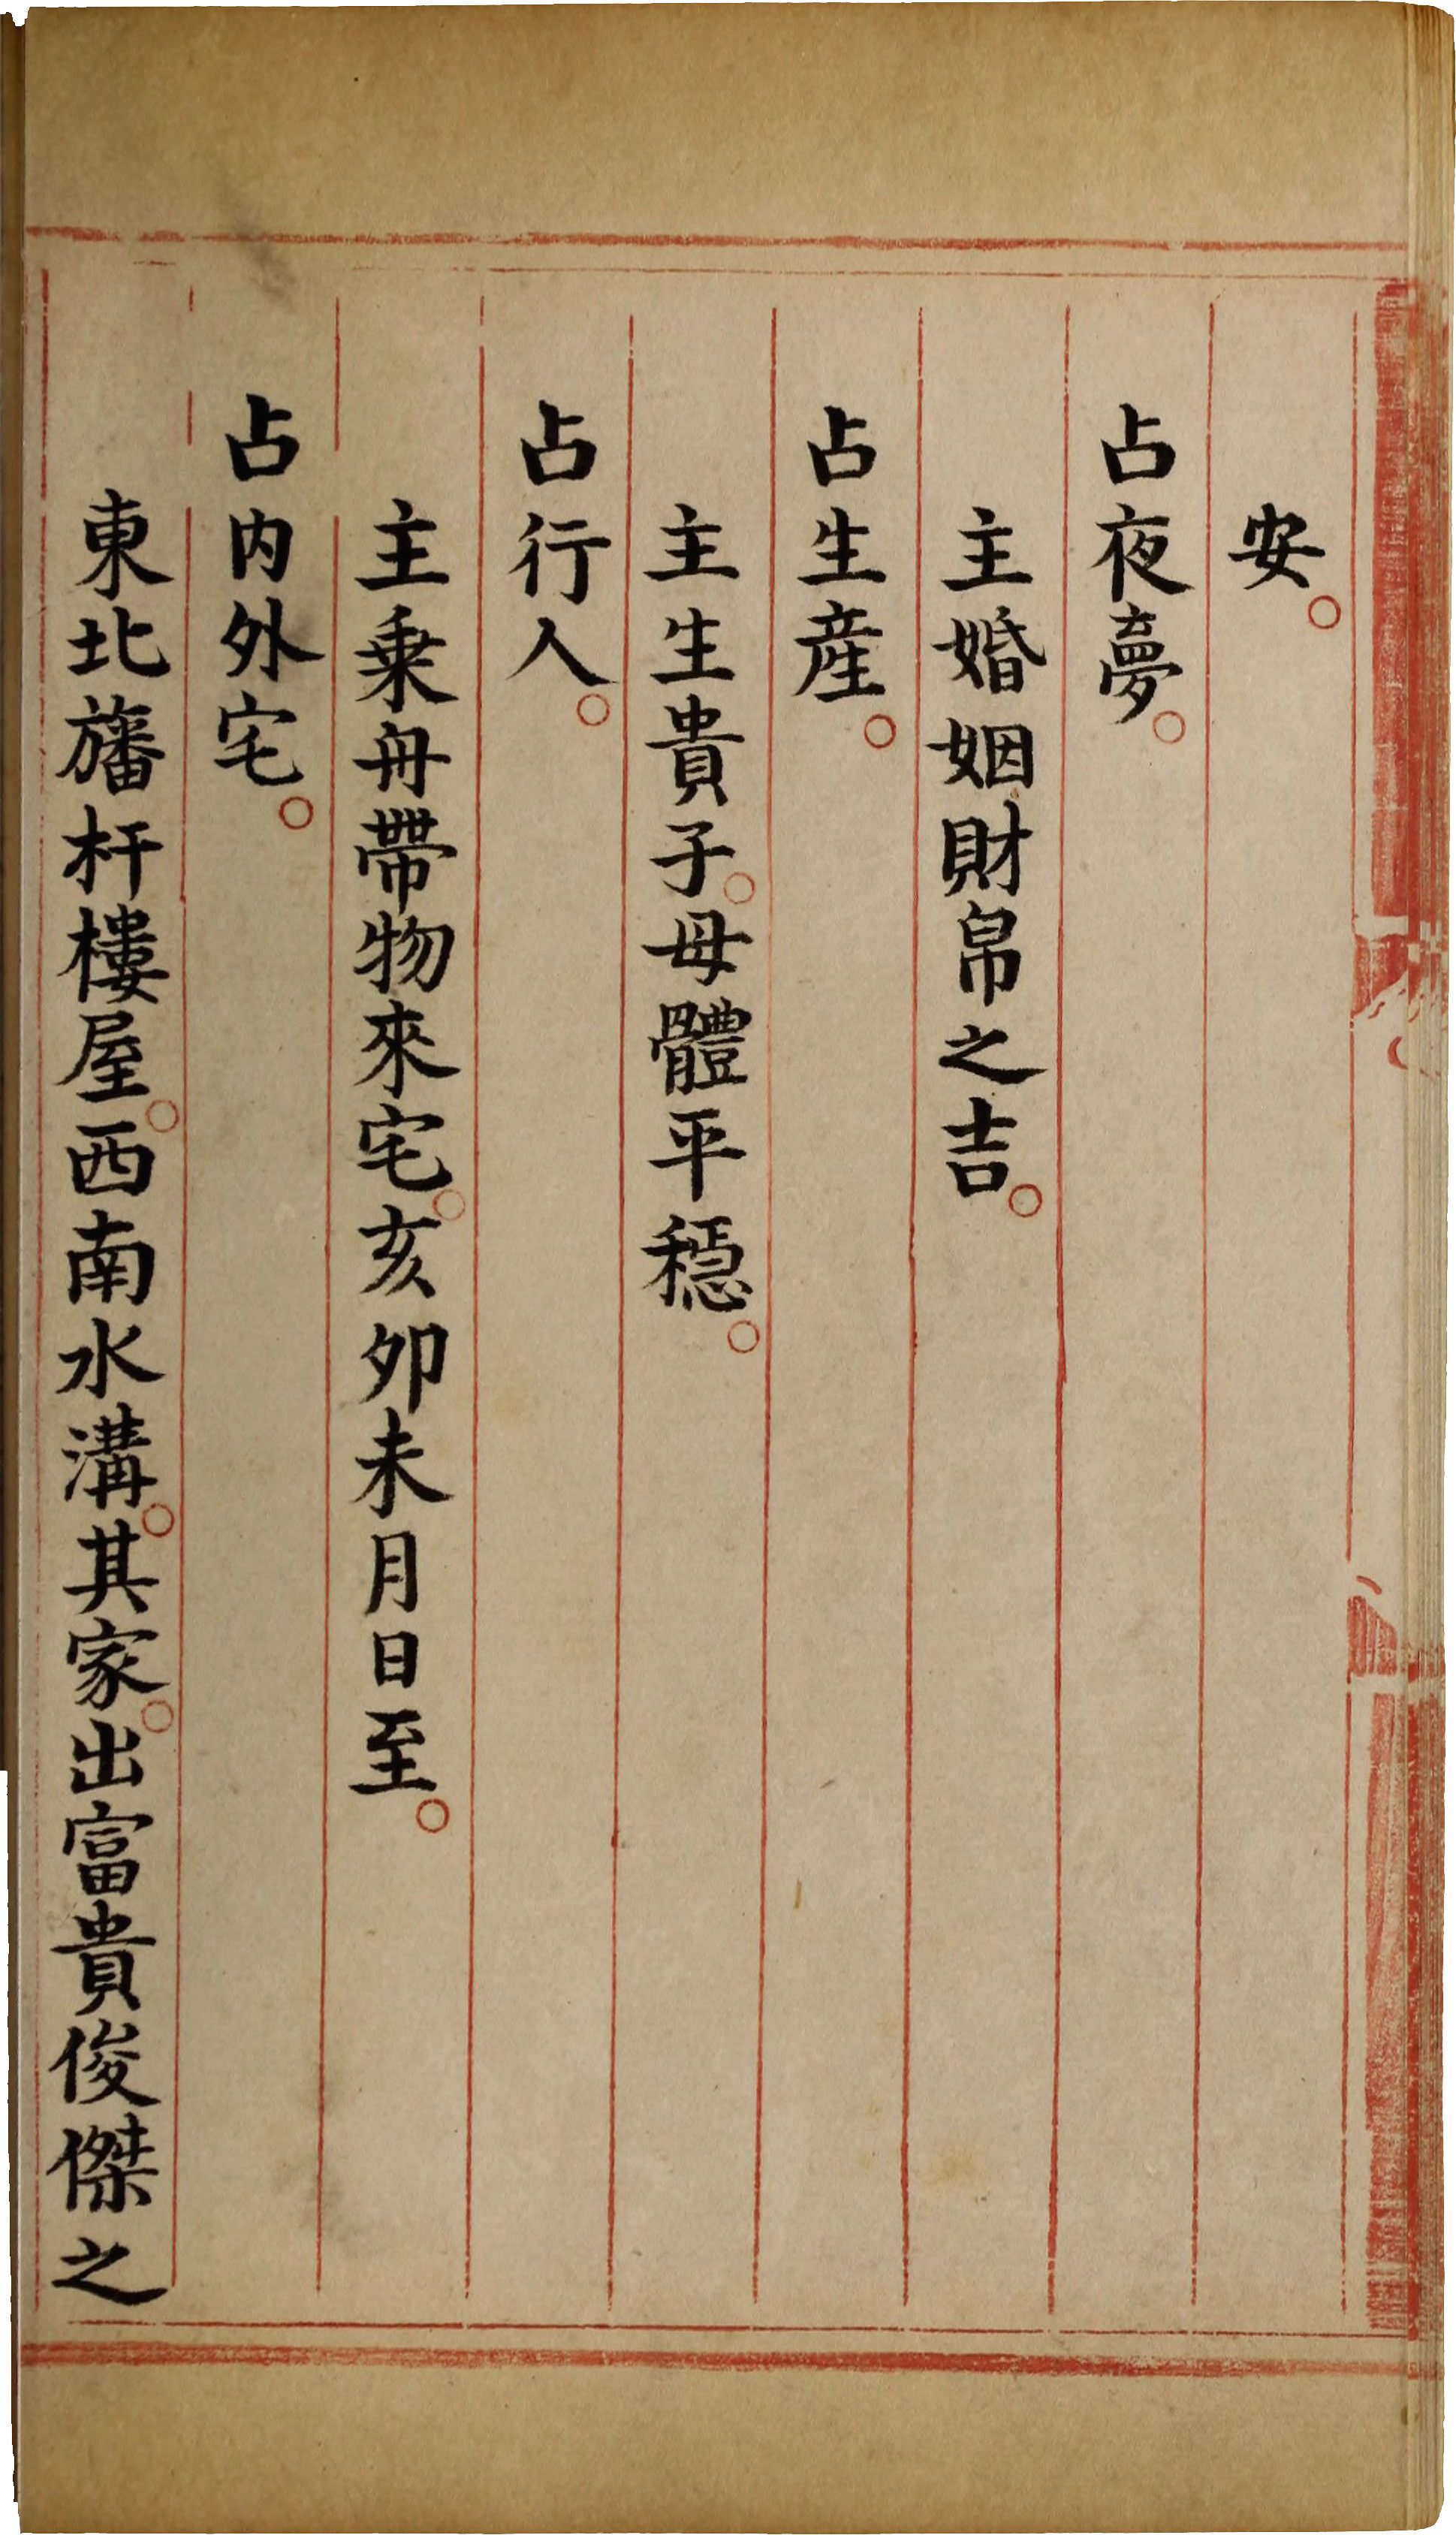 安。
占夜夢。
主婚姻財帛之吉。
占生産。
主生貴子。母體平穩。
占行人。
主乘舟帶物來宅。亥卯未月日至。
占内外宅。
東北旛杆樓屋。西南水溝。其家。出富貴俊傑之